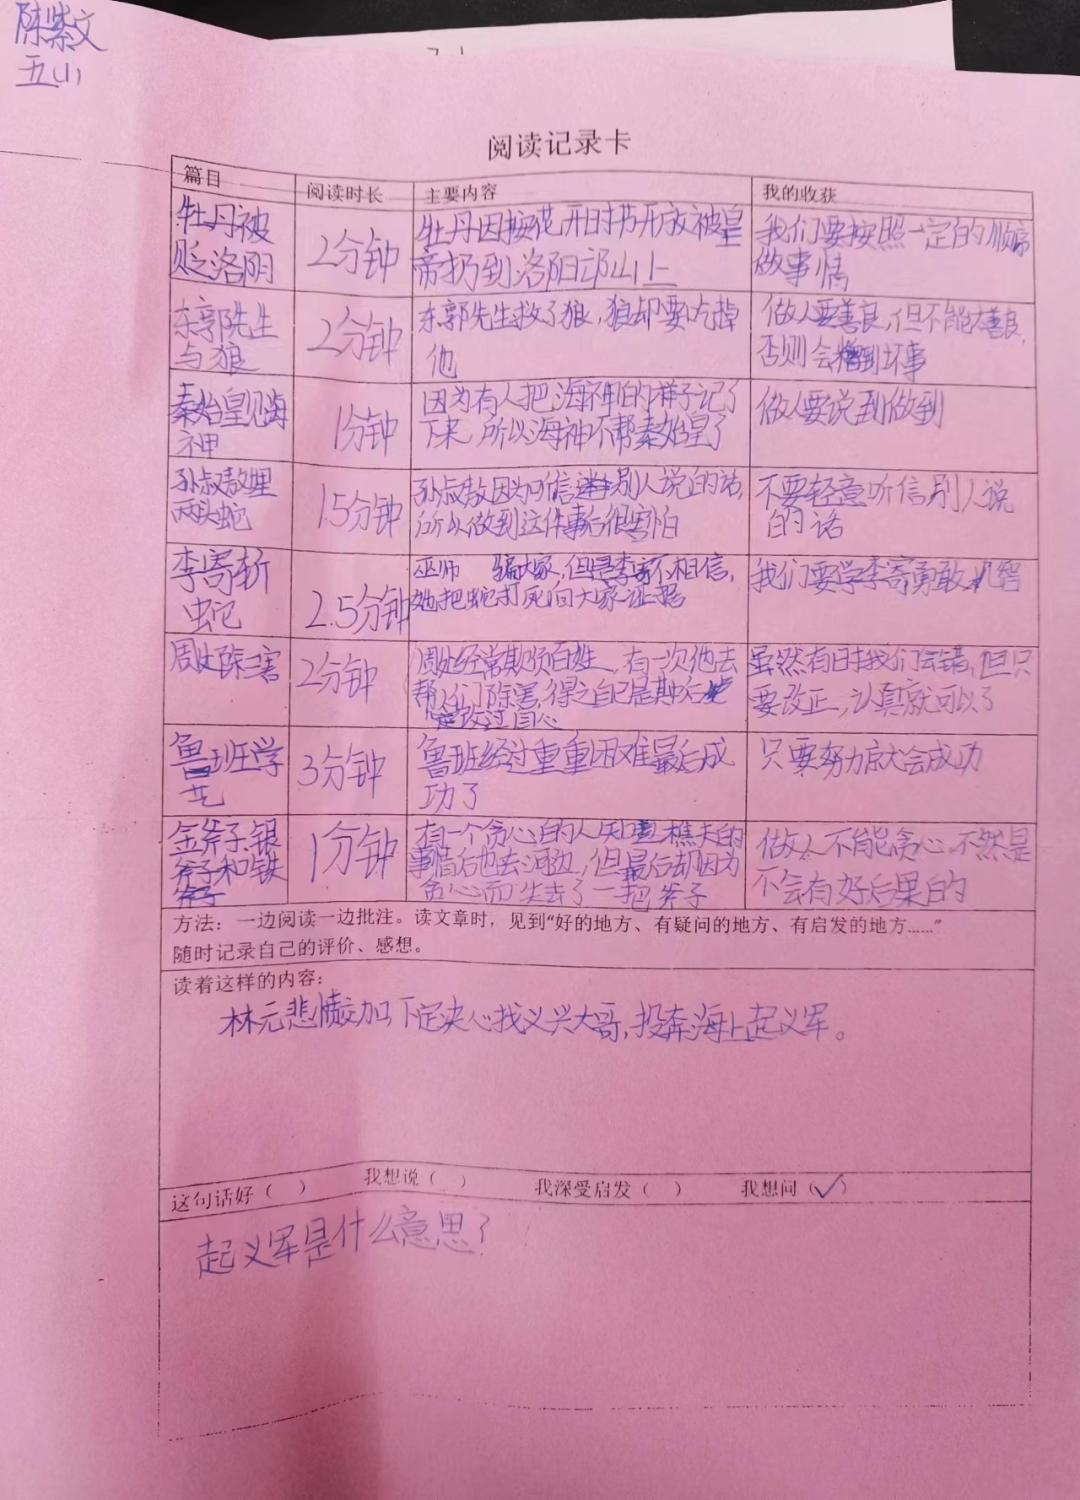 陈紫文
五(1)
阅读记录卡
篇目
阅读时长
主要内容
我的收获
牡丹被
贬洛阴
2分钟
牡丹因按花开时节开放被皇
帝扔到洛阳邙山上
我们要按照一定的顺序
做事情
东郭先生
与狼
2分钟
东郭先生救了狼,狼却要吃掉
他
做人要善良,但不能太善良,
否则会遭到坏事
秦始皇见海
神
1分钟
因为有人把海神的样子记了
下来,所以海神不帮秦始皇了
做人要说到做到
孙叔敖埋
两头蛇
1.5分钟
孙叔敖因为听信别人说的话,
所以做到这件事后很害怕
不要轻意听信别人说
的话
李寄斩
蛇
2.5分钟
巫师 骗大家,但是李寄不相信,
她把蛇打死向大家证
我们要学李寄勇敢,机智
周处除三害
2分钟
周处经常欺负百姓,有一次他去
帮人们除害,得之自己是
改过自心
虽然有时我们会错,但只
要改正,认真就可以了
鲁班学
艺
3分钟
鲁班经过重重困难最后成
功了
只要努力就会成功
金斧子银
斧子和铁
斧子
1分钟
有一个贪心的人知道樵夫的
事情后也去河边,但最后却因为
贪心而失去了一把斧子
做人不能贪心,不然是
不会有好后果的
方法：一边阅读一边批注。读文章时，见到“好的地方、有疑问的地方、有启发的地方……”
随时记录自己的评价、感想。
读着这样的内容：
林元悲愤交加,下定决心找义兴大哥,投奔海上起义军。
这句话好（ ） 我想说（ ） 我深受启发（ ） 我想问（✓）
起义军是什么意思?